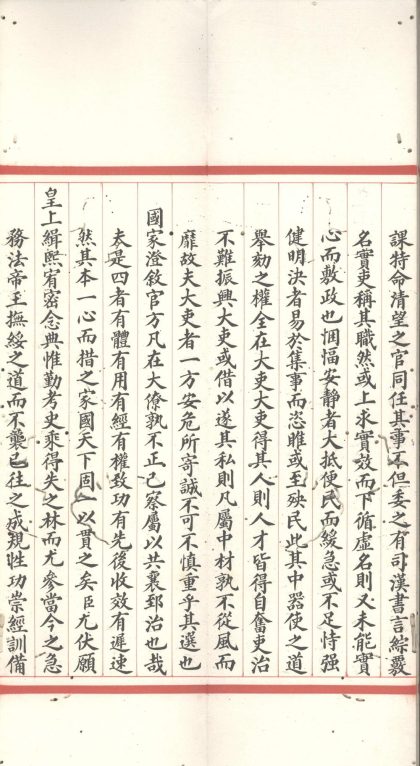 課特命清望之官同任其事不但委之有司漢書言綜覈
名實吏稱其職然或上求實效而下循虛名則又未能實
心而敷政也悃愊安靜者大抵便民而緩急或不足恃强
健明決者易於集事而恣睢或至殃民此其中器使之道
舉劾之權全在大吏大吏得其人則人才皆得自奮吏治
不難振興大吏或借以遂其私則凡屬中材孰不從風而
靡故夫大吏者一方安危所寄誠不可不慎重乎其選也
國家澄敘官方凡在大僚孰不正己察屬以共襄郅治也哉
夫是四者有體有用有經有權致功有先後收效有遲速
然其本一心而措之家國天下固一以貫之矣臣尤伏願
皇上緝熙宥密念典惟勤考史乘得失之林而尤參當今之急
務法帝王撫綏之道而不襲已往之成規性功崇經訓備